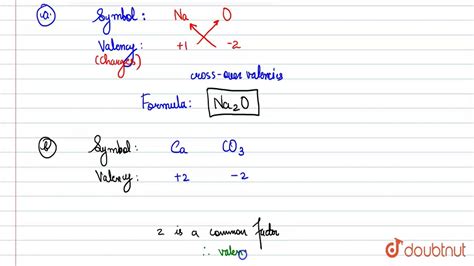 (a) Symbol : Na O
Valency : +1 -2
(Charges)
cross-over valencies
Formula: Na₂O
(b) Symbol: Ca CO₃
Valency: +2 -2
2 is a common factor
∴ valen
doubtnut